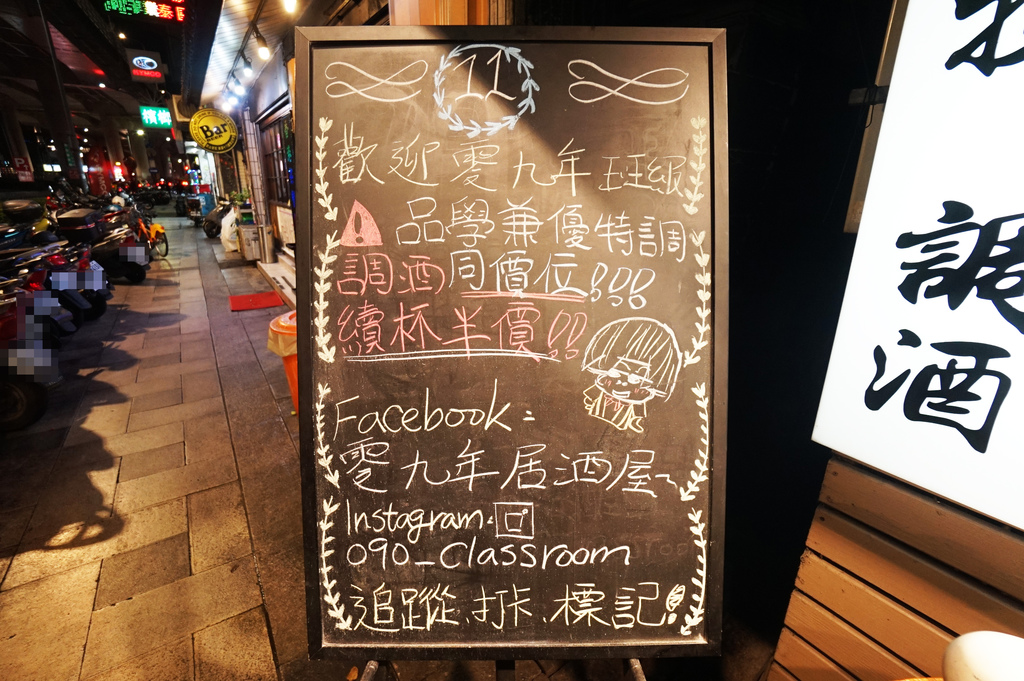 11
歡迎零九年班級
品學兼優特調
調酒同價位!!!
續杯半價!!
Facebook:
零九年居酒屋~
Instagram:
090_Classroom
追蹤、打卡、標記!
Bar
檳榔
KYMCO
P
調
酒